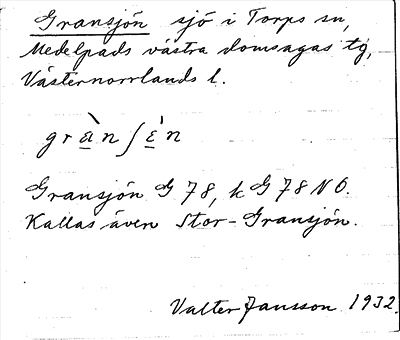 Gransjön sjö i Torps sn,
Medelpads västra domsagas tg,
Västernorrlands l.
gràn∫ɛ̀n
Gransjön G 78, k G 78 N O.
Kallas även Stor-Gransjön.
Valter Jansson 1932.